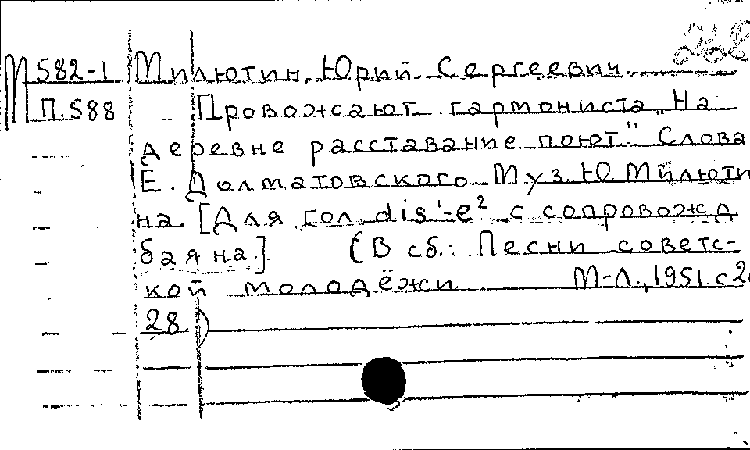 М 582-1 Милютин, Юрий Сергеевич.
П.588 Провожают гармониста „На
деревне расставание поют." Слова
Е. Долматовского Муз. Ю Милюти
на. [Для гол. dis'-e² с сопровожд
баяна.] (В сб.: Песни советс-
кой молодёжи М-Л., 1951. с
28)